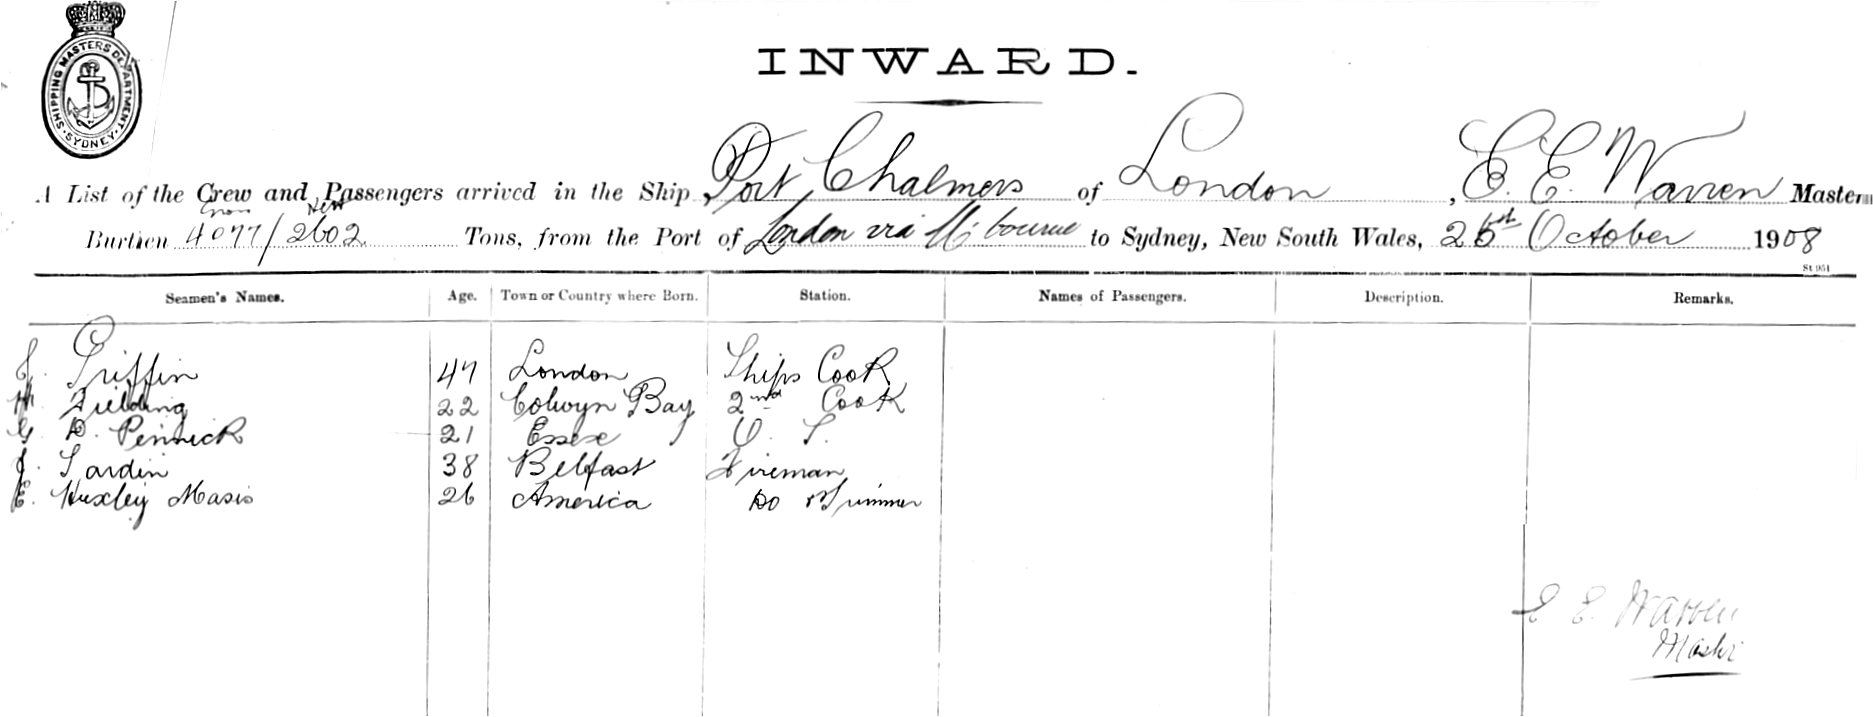 SHIPPING MASTERS DEPARTMENT
SYDNEY
INWARD.
A List of the Crew and Passengers arrived in the Ship Port Chalmers of London, E. E. Warren Master
Gross Nett
Burthen 4077/2602 Tons, from the Port of London via M'bourne to Sydney, New South Wales, October 1908
St 951
Seamen's Names. Age. Town or Country where Born. Station. Names of Passengers. Description. Remarks.
J. Griffin 47 London Ships Cook
Fielding 22 Colwyn Bay 2nd Cook
G. D. Pennick 21 Essex O. S.
J. Sardin 38 Belfast Fireman
E. Huxley Masis 26 America Do Trimmer
E E Warren
Master